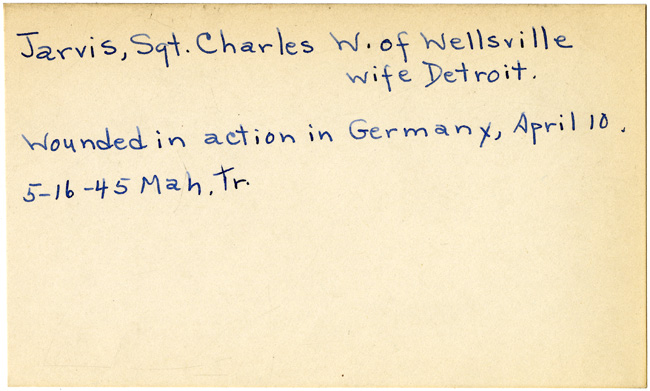 Jarvis, Sgt. Charles W. of Wellsville
wife Detroit.
Wounded in action in Germany, April 10.
5-16-45 Mah. Tr.